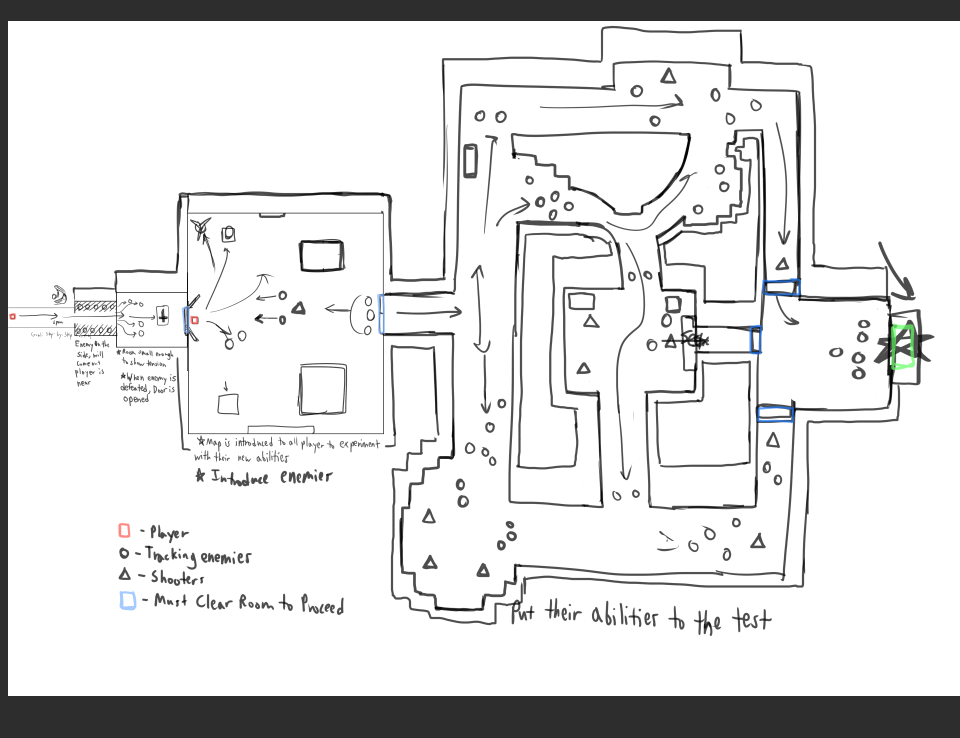 Enemy on the
Side, will
come out
player is
near
★Room small enough
to show tension
★When enemy is
defeated, Door is
opened
★Map is introduced to all player to experiment
with their new abilities
★ Introduce enemies
- Player
- Tracking enemies
- Shooters
- Must Clear Room to Proceed
Put their abilities to the test